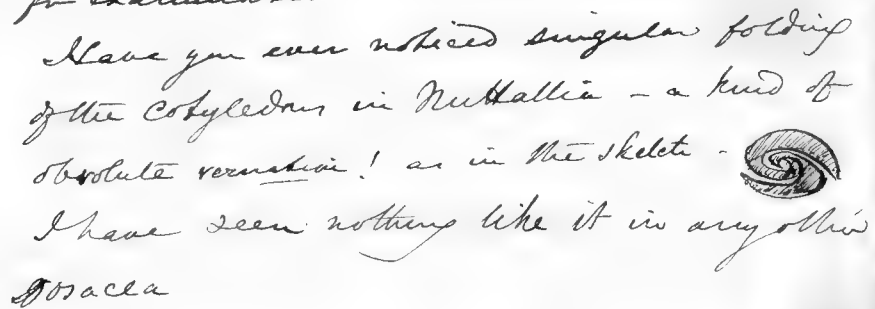 for examina
Have you ever noticed singular folding
of the cotyledons in Nuttallia – a kind of
obvolute vernation! as in the sketch –
I have seen nothing like it in any other
Rosacea